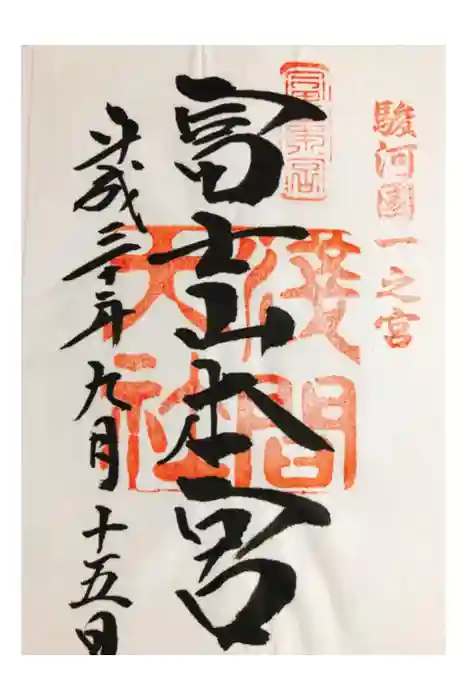 駿河國一之宮
富士山本宮
淺間
大社
平成三十年九月十五日